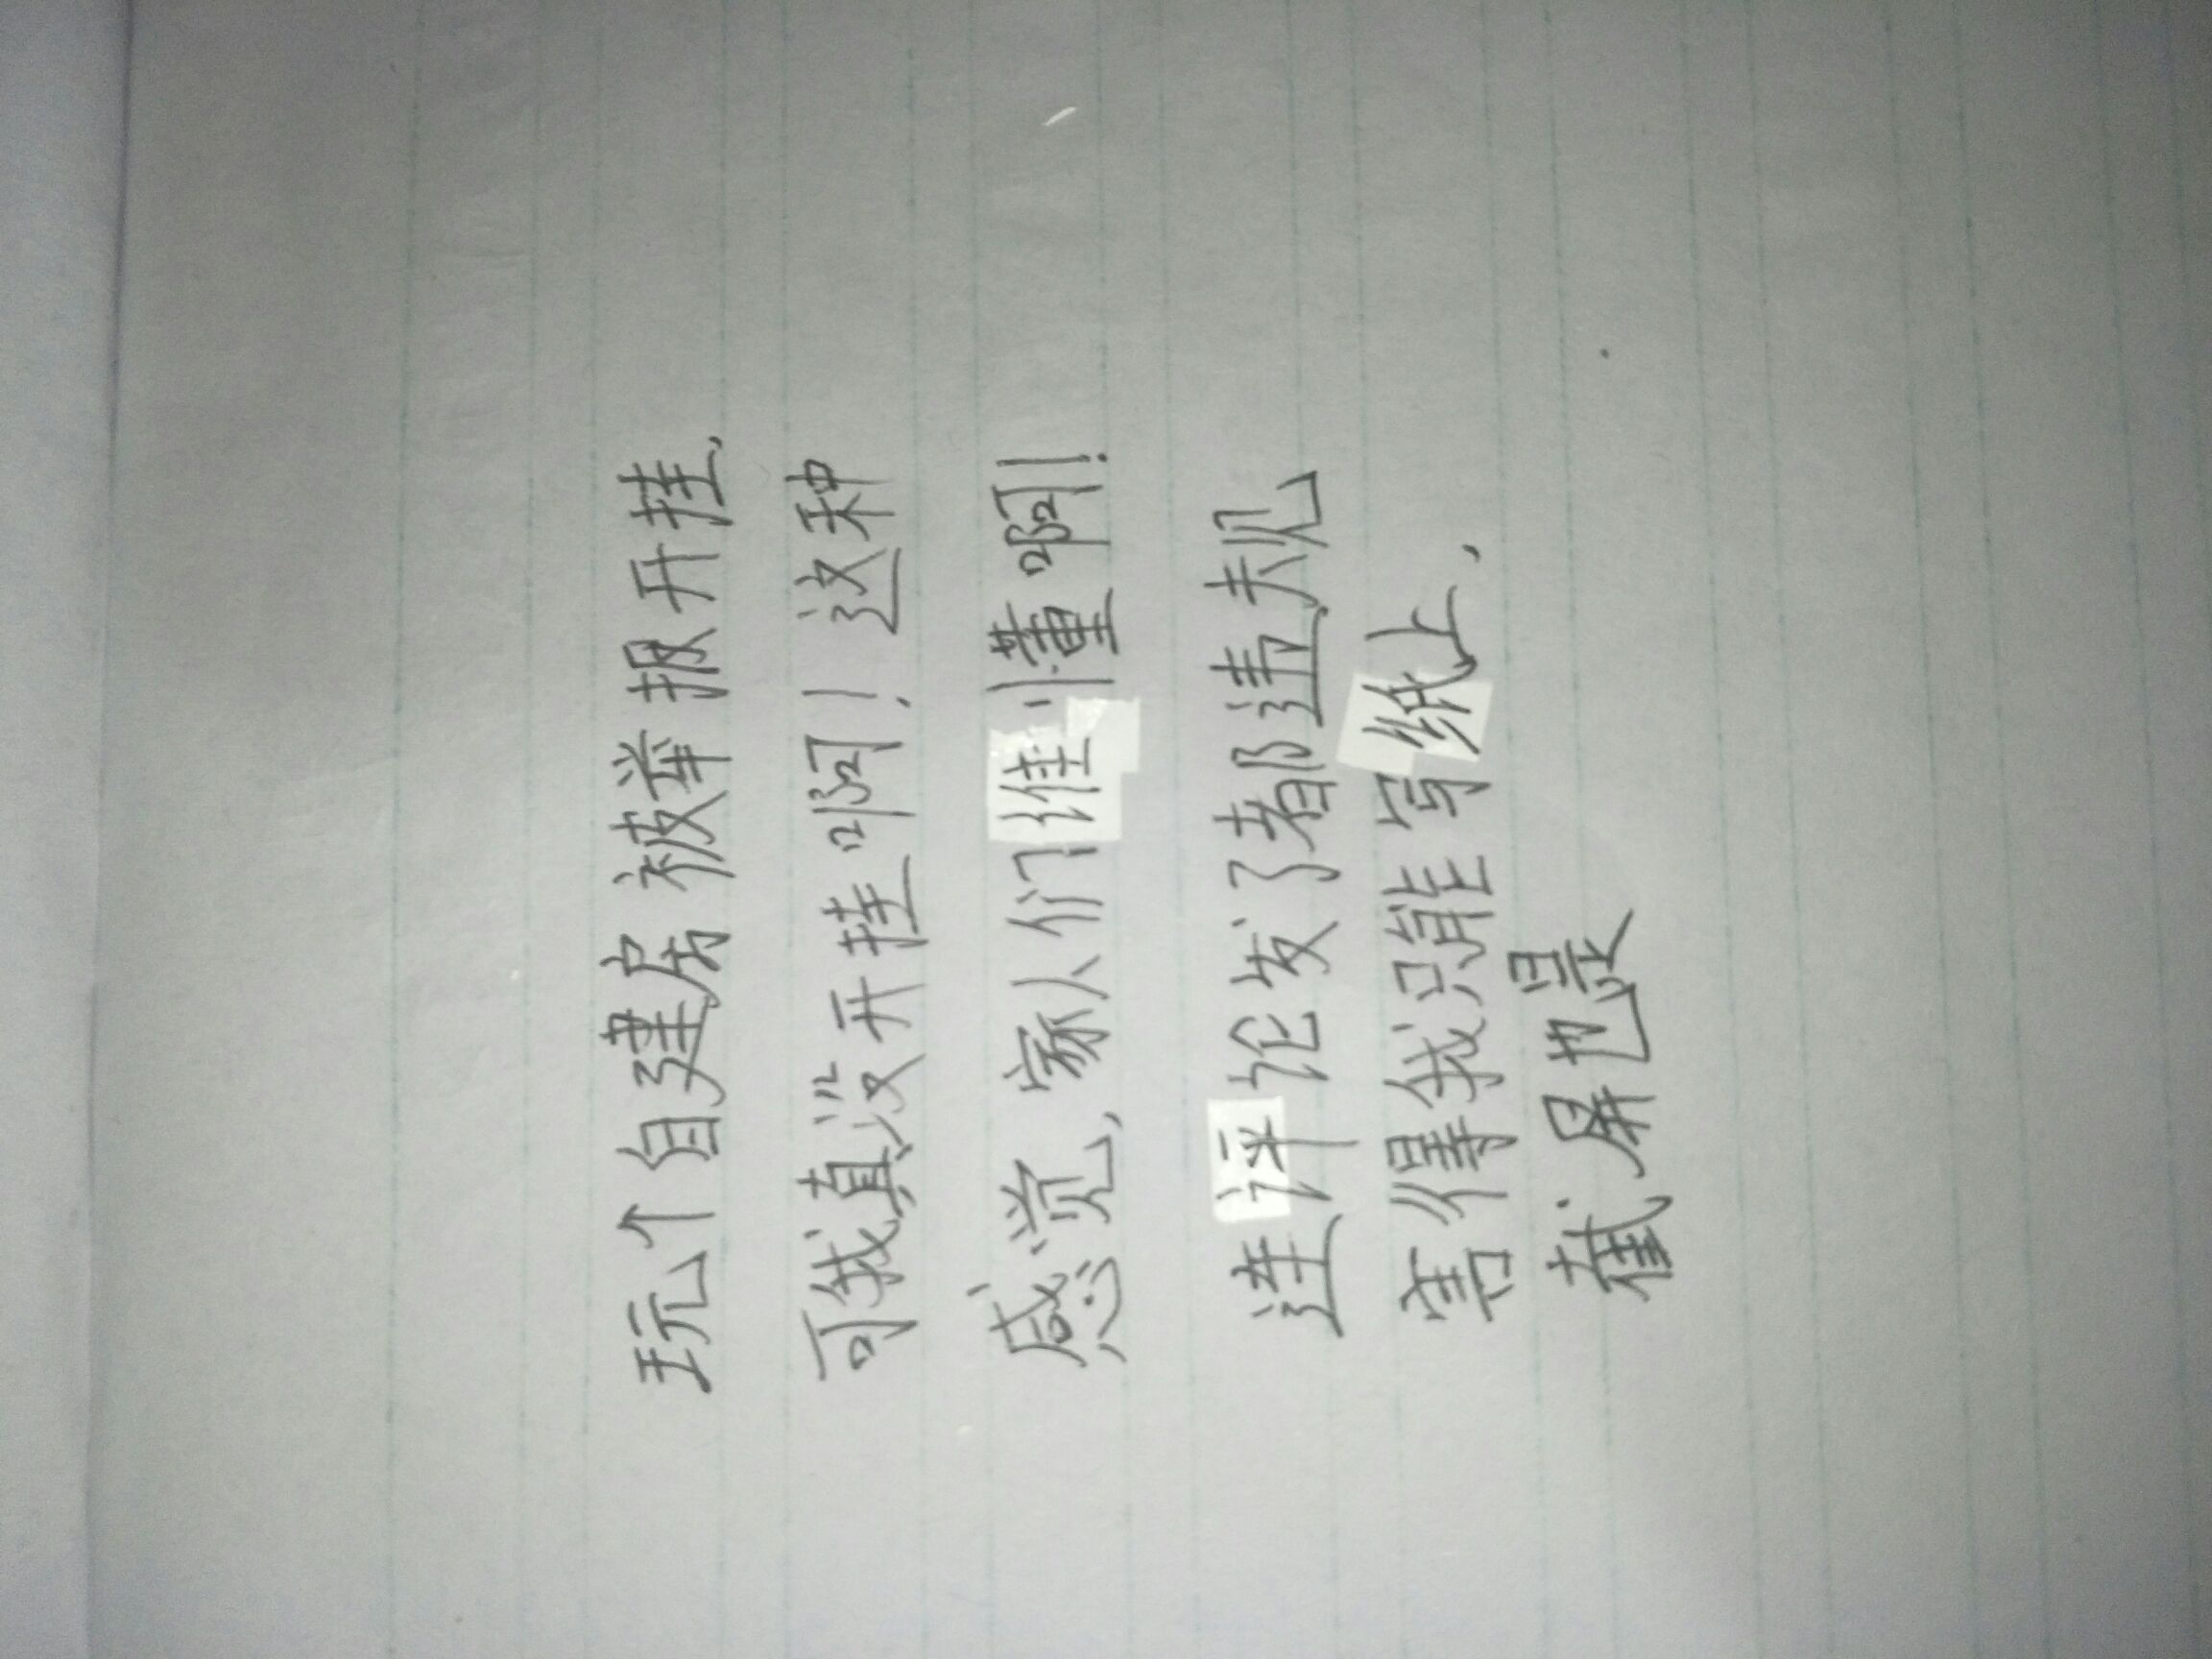 玩个自建房被举报开挂，
可我真没开挂啊！这种
感觉，家人们谁懂啊！
连评论发了都违规
害得我只能写纸上，
截屏也是